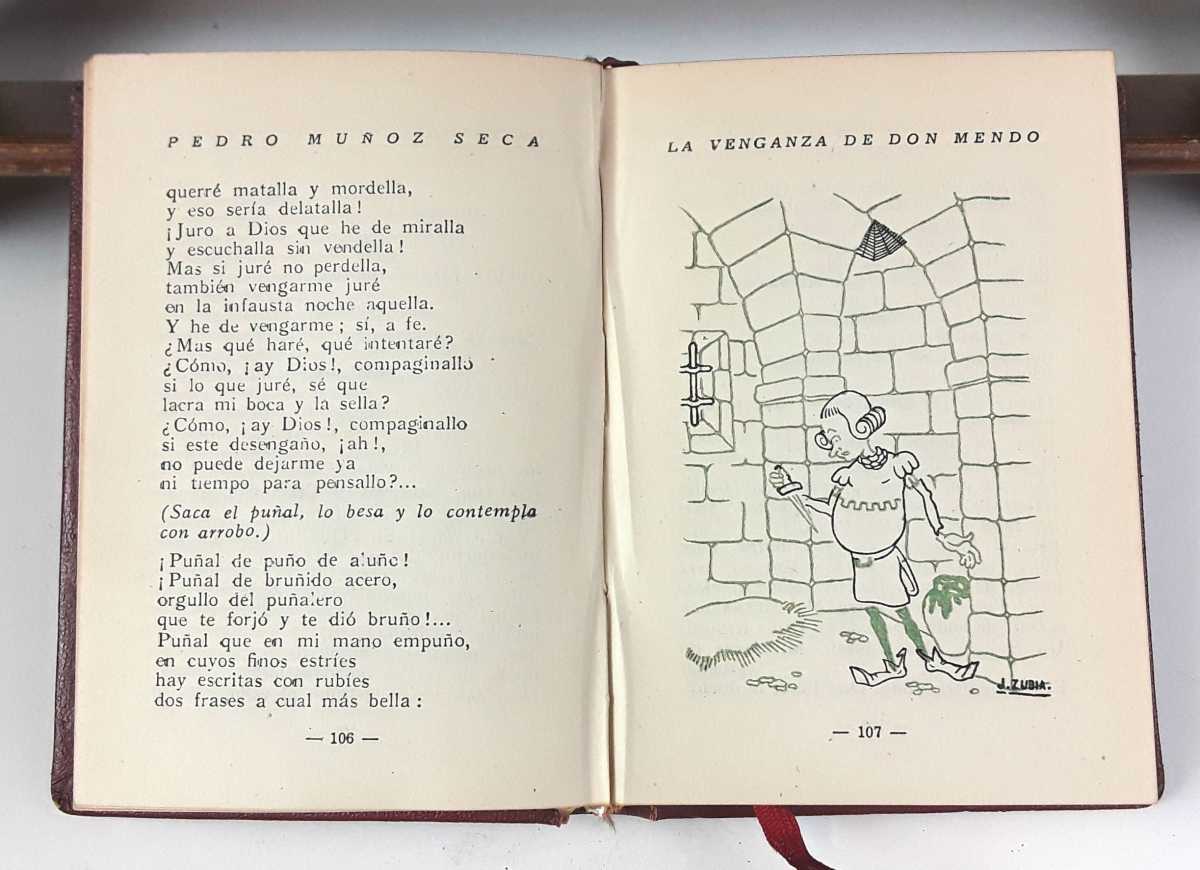 PEDRO MUÑOZ SECA
querré matalla y mordella,
y eso sería delatalla!
¡Juro a Dios que he de miralla
y escuchalla sin vendella!
Mas si juré no perdella,
también vengarme juré
en la infausta noche aquella.
Y he de vengarme; sí, a fe.
¿Mas qué haré, qué intentaré?
¿Cómo, ¡ay Dios!, compaginallo
si lo que juré, sé que
lacra mi boca y la sella?
¿Cómo, ¡ay Dios!, compaginallo
si este desengaño, ¡ah!,
no puede dejarme ya
ni tiempo para pensallo?...
(Saca el puñal, lo besa y lo contempla
con arrobo.)
¡Puñal de puño de aluño!
¡Puñal de bruñido acero,
orgullo del puñalero
que te forjó y te dió bruño!...
Puñal que en mi mano empuño,
en cuyos finos estríes
hay escritas con rubíes
dos frases a cual más bella:
— 106 —
LA VENGANZA DE DON MENDO
J. ZUBIA.
— 107 —